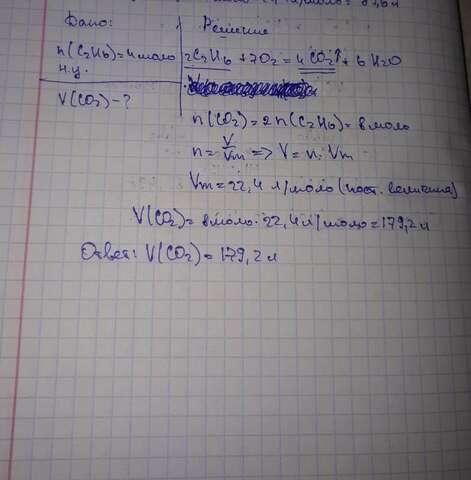 Дано:
Решение
n(C₂H₆)=4 моль
н.у.
V(CO₂)-?
2C₂H₆+7O₂=4CO₂↑+6H₂O
n(CO₂)=2n(C₂H₆)=8 моль
n=V/Vm=>V=n·Vm
Vm=22,4 л/моль (пост. величина)
V(CO₂)=8 моль·22,4 л/моль=179,2 л
Ответ: V(CO₂)=179,2 л